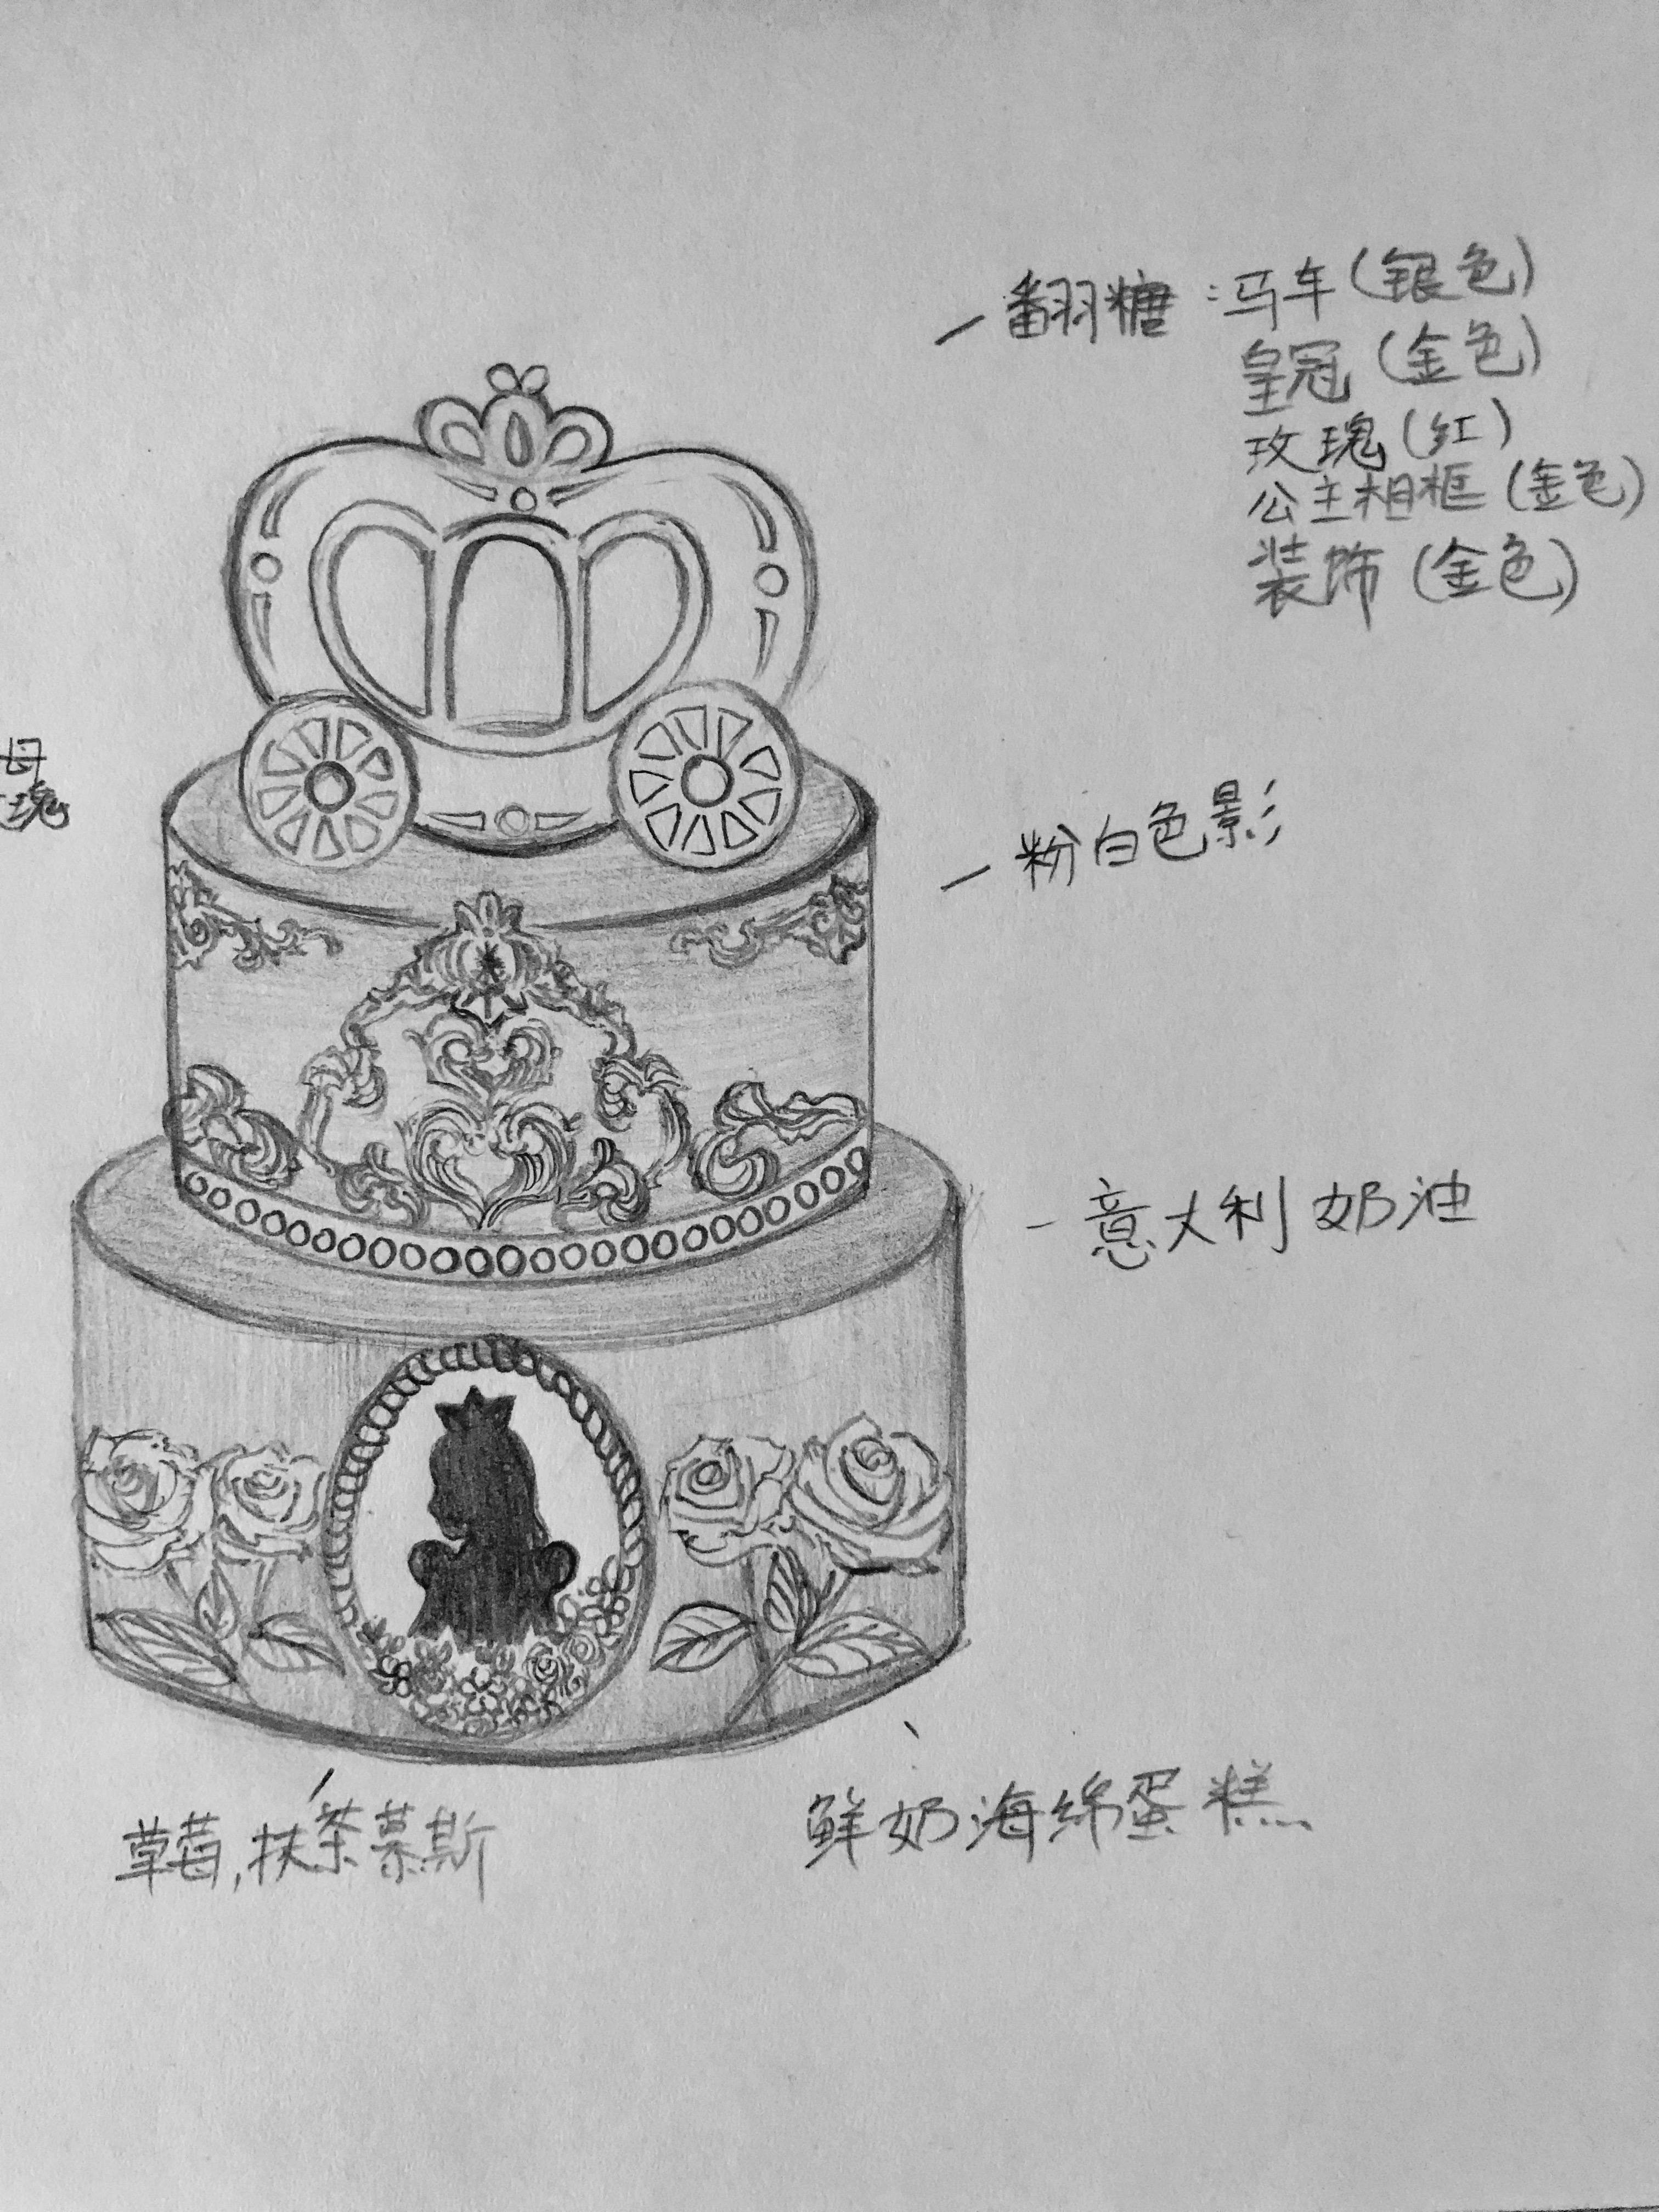 翻糖：马车（银色）
皇冠（金色）
玫瑰（红）
公主相框（金色）
装饰（金色）
母
瑰
粉白色影
意大利奶油
草莓，抹茶慕斯
鲜奶海绵蛋糕